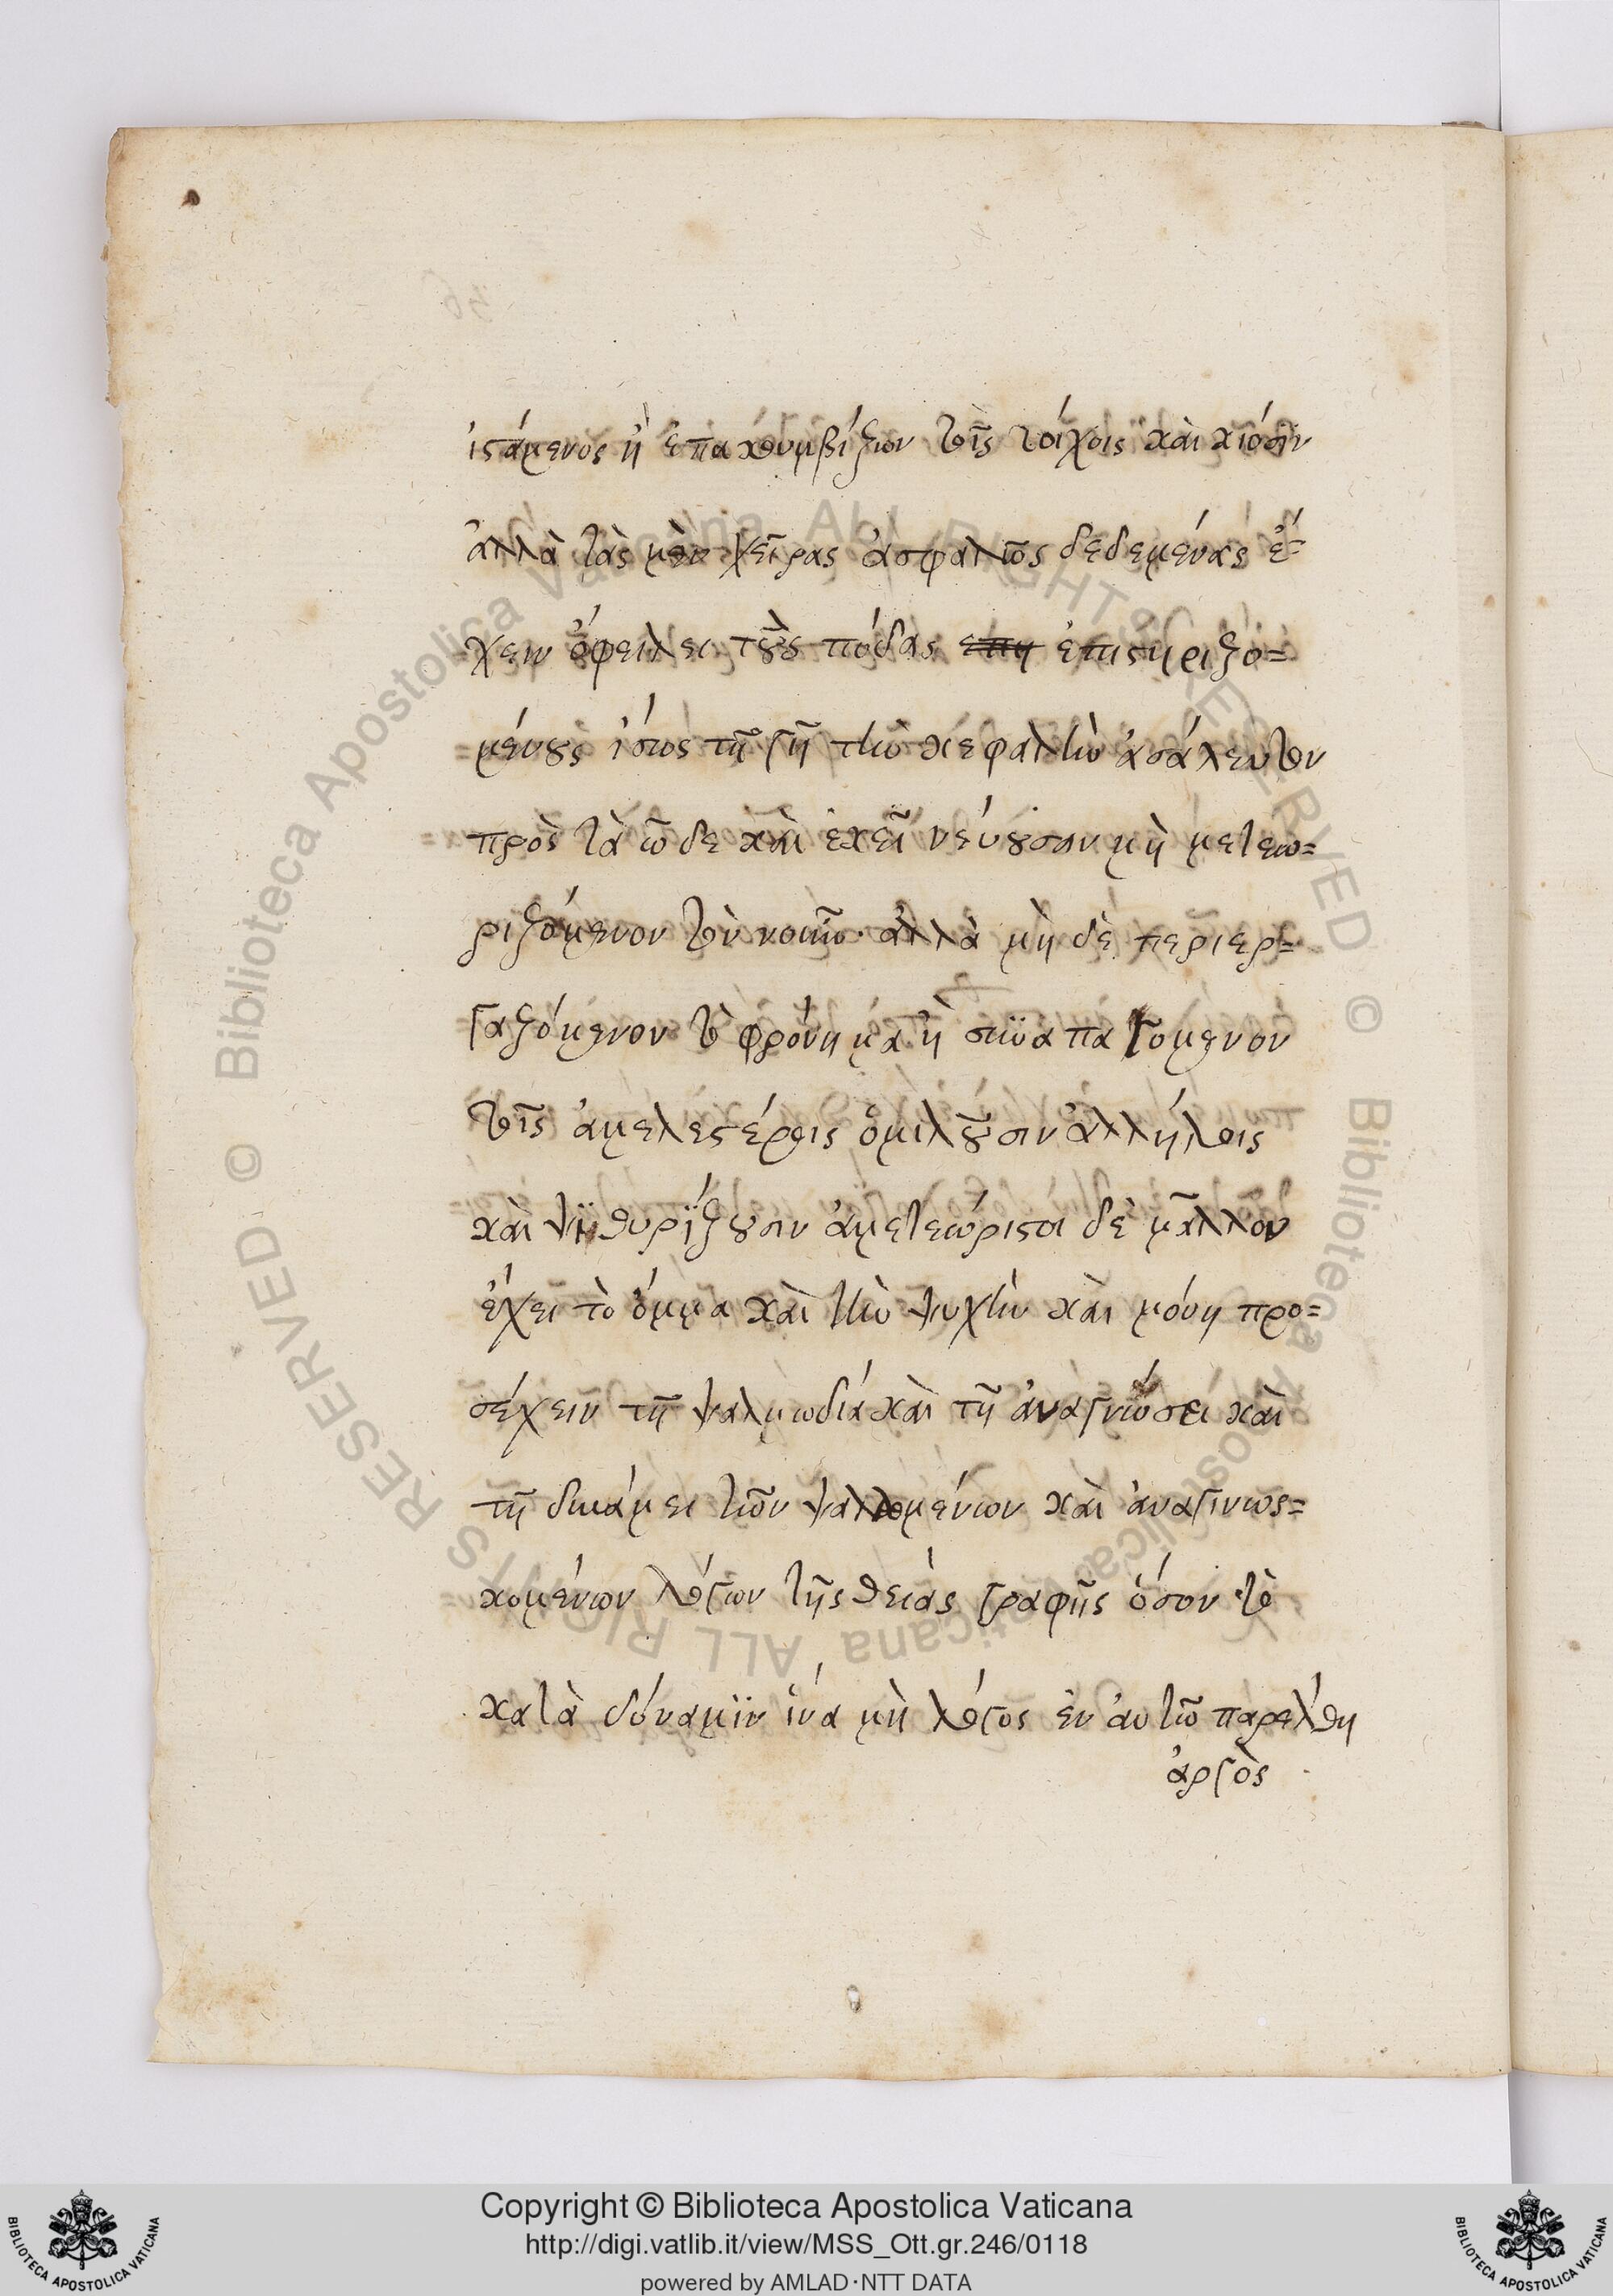 ἱστάμενος ἢ ἐπακουμβίζων τοῖς τοίχοις καὶ κίοσϊν
ἀλλὰ τὰς μὲν χεῖρας ἀσφαλῶς δεδεμένας ἔ=
χειν ὀφείλει τοὺς πόδας επη ἐπιστηριζο=
μένους ἴσως τῇ γῇ τὴν κεφαλὴν ἀσάλευτον
πρὸς τὰ ὧδε καὶ ἐκεῖ νεύουσαν μὴ μετεω=
ριζόμενον τὸν νοῦν· ἀλλὰ μὴ δὲ περιερ=
γαζόμενον τὸ φρόνημα ἢ συναπαγομενον
τοῖς ἀμελεστέροις ὁμιλοῦσιν ἀλλήλοις
καὶ ψϊθυρΐζουσιν ἀμετεώριστοι δὲ μᾶλλον
ἔχει τὸ ὄμμα καὶ τὴν ψυχὴν καὶ μόνη προ=
σέχειν τῇ ψαλμωδία καὶ τῇ ἀναγνώσει καὶ
τῇ δυνάμει τῶν ψαλλομένων καὶ ἀναγινωσ=
κομένων λόγων τῆς θείας γραφῆς ὅσον τὸ
κατὰ δύναμϊν ἵνα μὴ λόγος ἐν αὐτῶ παρέλθη
ἀργὸς
Copyright © Biblioteca Apostolica Vaticana
http://digi.vatlib.it/view/MSS_Ott.gr.246/0118
powered by AMLAD·NTT DATA